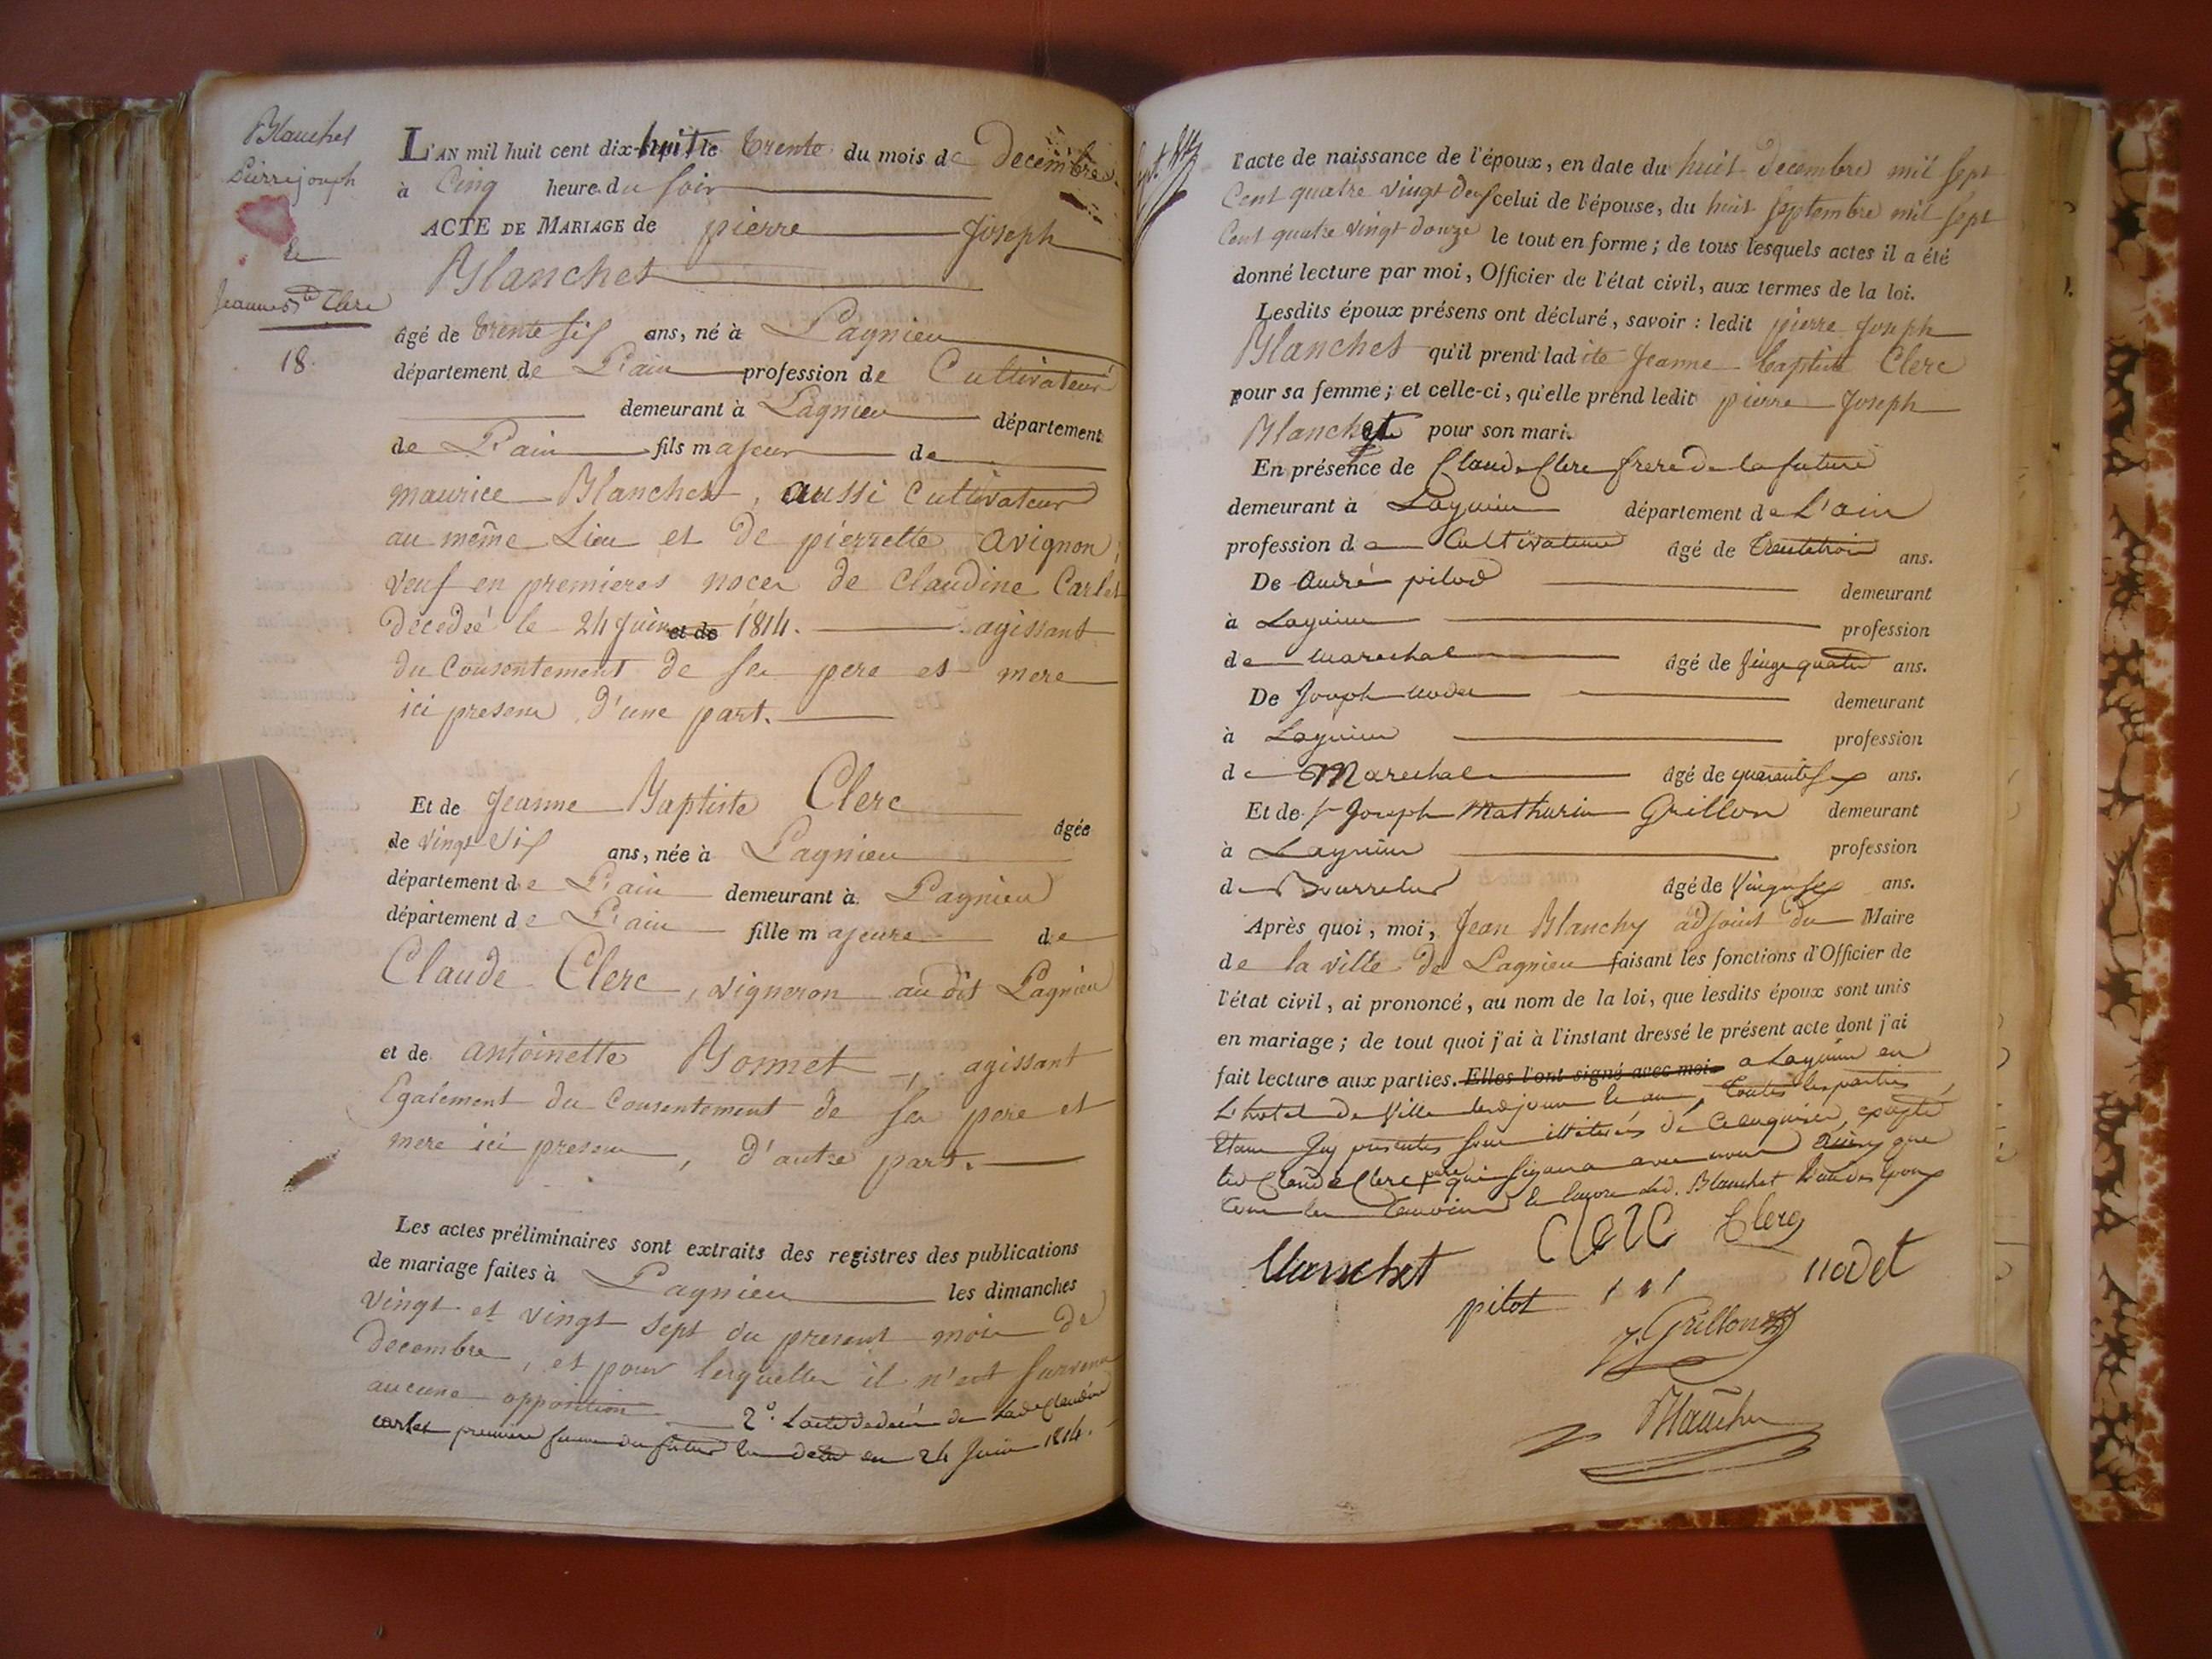 Blanchet
Pierre joseph
&
Jeanne B.te Clerc
18.
L'AN mil huit cent dix-huit le trente du mois de decembre
à Cinq heure du soir
ACTE DE MARIAGE de pierre Joseph
Blanchet
âgé de trente six ans, né à Lagnieu
département de L'ain profession de Cultivateur
demeurant à Lagnieu département
de L'ain fils majeur de
maurice Blanchet, aussi Cultivateur
au même Lieu et de pierrette avignon,
veuf en premieres noces de Claudine Carlet
décédée le 24 Juin et de 1814. agissant
du Consentement de ses pere et mere
ici presens, d'une part.
Et de Jeanne Baptiste Clerc âgée
de vingt six ans, née à Lagnieu
département de L'ain demeurant à Lagnieu
département de L'ain fille majeure de
Claude Clerc, vigneron audit Lagnieu
et de antoinette Bonnet, agissant
Egalement du Consentement de ses pere et
mere ici presens, d'autre part.
Les actes préliminaires sont extraits des registres des publications
de mariage faites à Lagnieu les dimanches
vingt et vingt sept du present mois de
decembre, et pour lesquelles il n'est survenu
aucune opposition 2°. L'acte de décès de lade Claudine
carlet premiere femme du futur en 24 Juin 1814.
l'acte de naissance de l'époux, en date du huit decembre mil sept
Cent quatre vingt deux celui de l'épouse, du huit septembre mil sept
Cent quatre vingt douze le tout en forme; de tous lesquels actes il a été
donné lecture par moi, Officier de l'état civil, aux termes de la loi.
Lesdits époux présens ont déclaré, savoir : ledit pierre Joseph
Blanchet qu'il prend ladite Jeanne baptiste Clerc
pour sa femme; et celle-ci, qu'elle prend ledit pierre Joseph
Blanchet pour son mari.
En présence de Claude Clerc frere de la future
demeurant à Lagnieu département de L'ain
profession de Cultivateur âgé de trente trois ans.
De André pilod demeurant
à Lagnieu profession
de marechal âgé de vingt quatre ans.
De Joseph nodet demeurant
à Lagnieu profession
de Marechal âgé de quarante six ans.
Et de Sr Joseph Mathurin Grillon demeurant
à Lagnieu profession
de Bourrelier âgé de vingt six ans.
Après quoi, moi, Jean Blanchy adjoint du Maire
de la ville de Lagnieu faisant les fonctions d'Officier de
l'état civil, ai prononcé, au nom de la loi, que lesdits époux sont unis
en mariage; de tout quoi j'ai à l'instant dressé le présent acte dont j'ai
fait lecture aux parties. Elles l'ont signé avec moi a Lagnieu en
L'hotel de Ville lesd jour & an, toutes les parties
illiterés de ce enquises, excepté
led Claude Clerc pere qui signera avec nous ainsy que
tous les temoins & led. Blanchet
Clerc Clerc
Blanchet nodet
pilot
J. Grillon
Blanchy